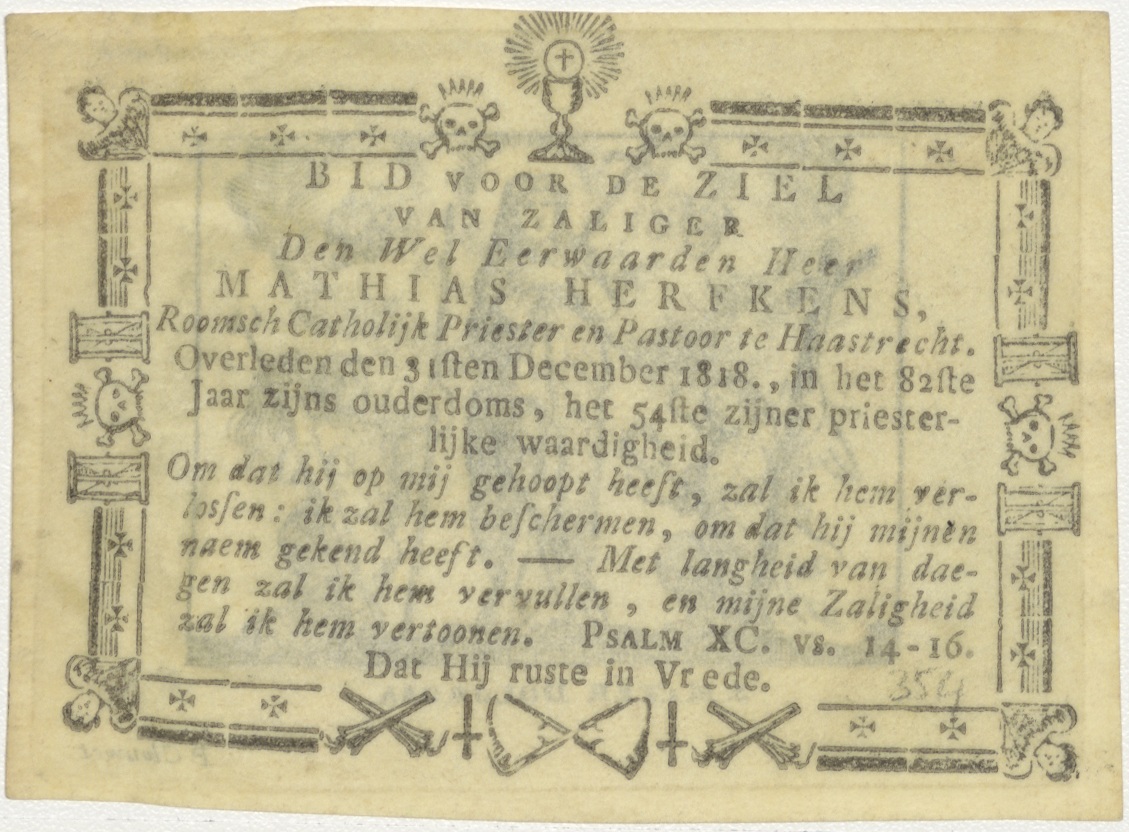 BID VOOR DE ZIEL
VAN ZALIGER
Den Wel Eerwaarden Heer
MATHIAS HERFKENS,
Roomsch Catholijk Priester en Pastoor te Haastrecht.
Overleden den 31ſten December 1818., in het 82ſte
Jaar zijns ouderdoms, het 54ſte zijner priester-
lijke waardigheid.
Om dat hij op mij gehoopt heeft, zal ik hem ver-
losſen: ik zal hem beſchermen, om dat hij mijnen
naem gekend heeft. — Met langheid van dae-
gen zal ik hem vervullen, en mijne Zaligheid
zal ik hem vertoonen. PSALM XC. vs. 14-16.
Dat Hij ruste in Vrede.